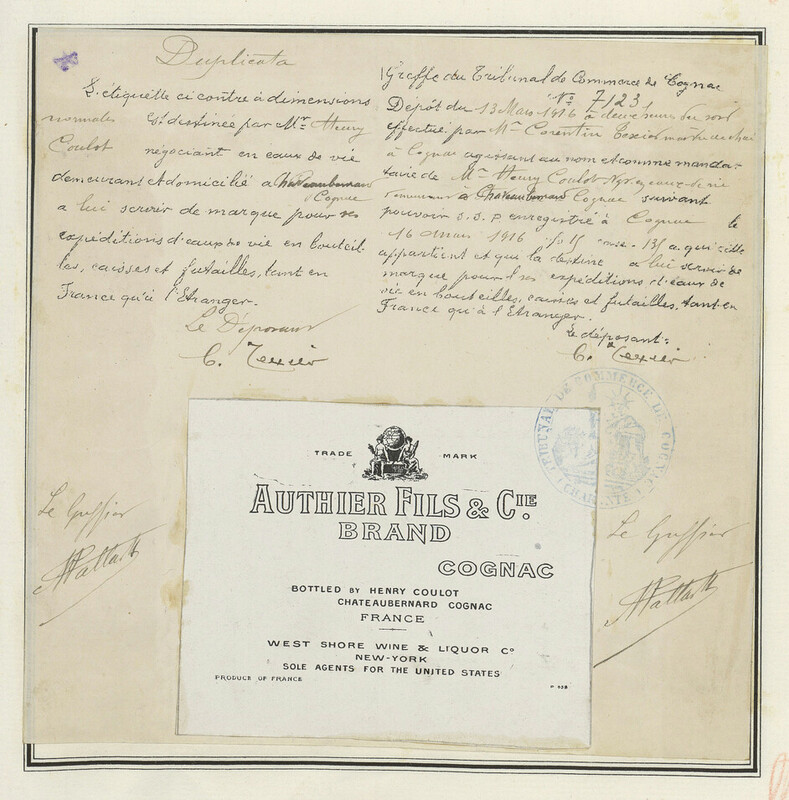 Duplicata
L'étiquette ci contre à dimensions
normales est destinée par Mr Henry
Coulot négociant en eaux de vie
demeurant et domicilié à Chateaubernard
Cognac
a lui servir de marque pour ses
expéditions d'eaux de vie en bouteil-
les, caisses et futailles, tant en
France qu'à l'Etranger.
Le Déposant
C. Texier
Greffe du Tribunal de Commerce de Cognac
No 7123
Dépôt du 13 Mars 1916 à deux heures du soir
effectué par Mr Corentin Texier maitre de chai
à Cognac agissant au nom et comme manda-
taire de Mr Henry Coulot Ngt en eaux de vie
demeurant à Chateaubernard Cognac suivant
pouvoir S.S.P. enregistré à Cognac le
16 Mars 1916 fo 15 case 135 a qui elle
appartient et que la destine a lui servir de
marque pour ses expéditions d'eaux de
vie en bouteilles, caisses et futailles, tant en
France qu'à l'Etranger.
Le déposant:
C. Texier
TRIBUNAL DE COMMERCE DE COGNAC
(CHARENTE)
TRADE MARK
AUTHIER FILS & CIE.
BRAND
COGNAC
BOTTLED BY HENRY COULOT
CHATEAUBERNARD COGNAC
FRANCE
WEST SHORE WINE & LIQUOR Co
NEW-YORK
SOLE AGENTS FOR THE UNITED STATES
PRODUCE OF FRANCE
Le Greffier
Le Greffier